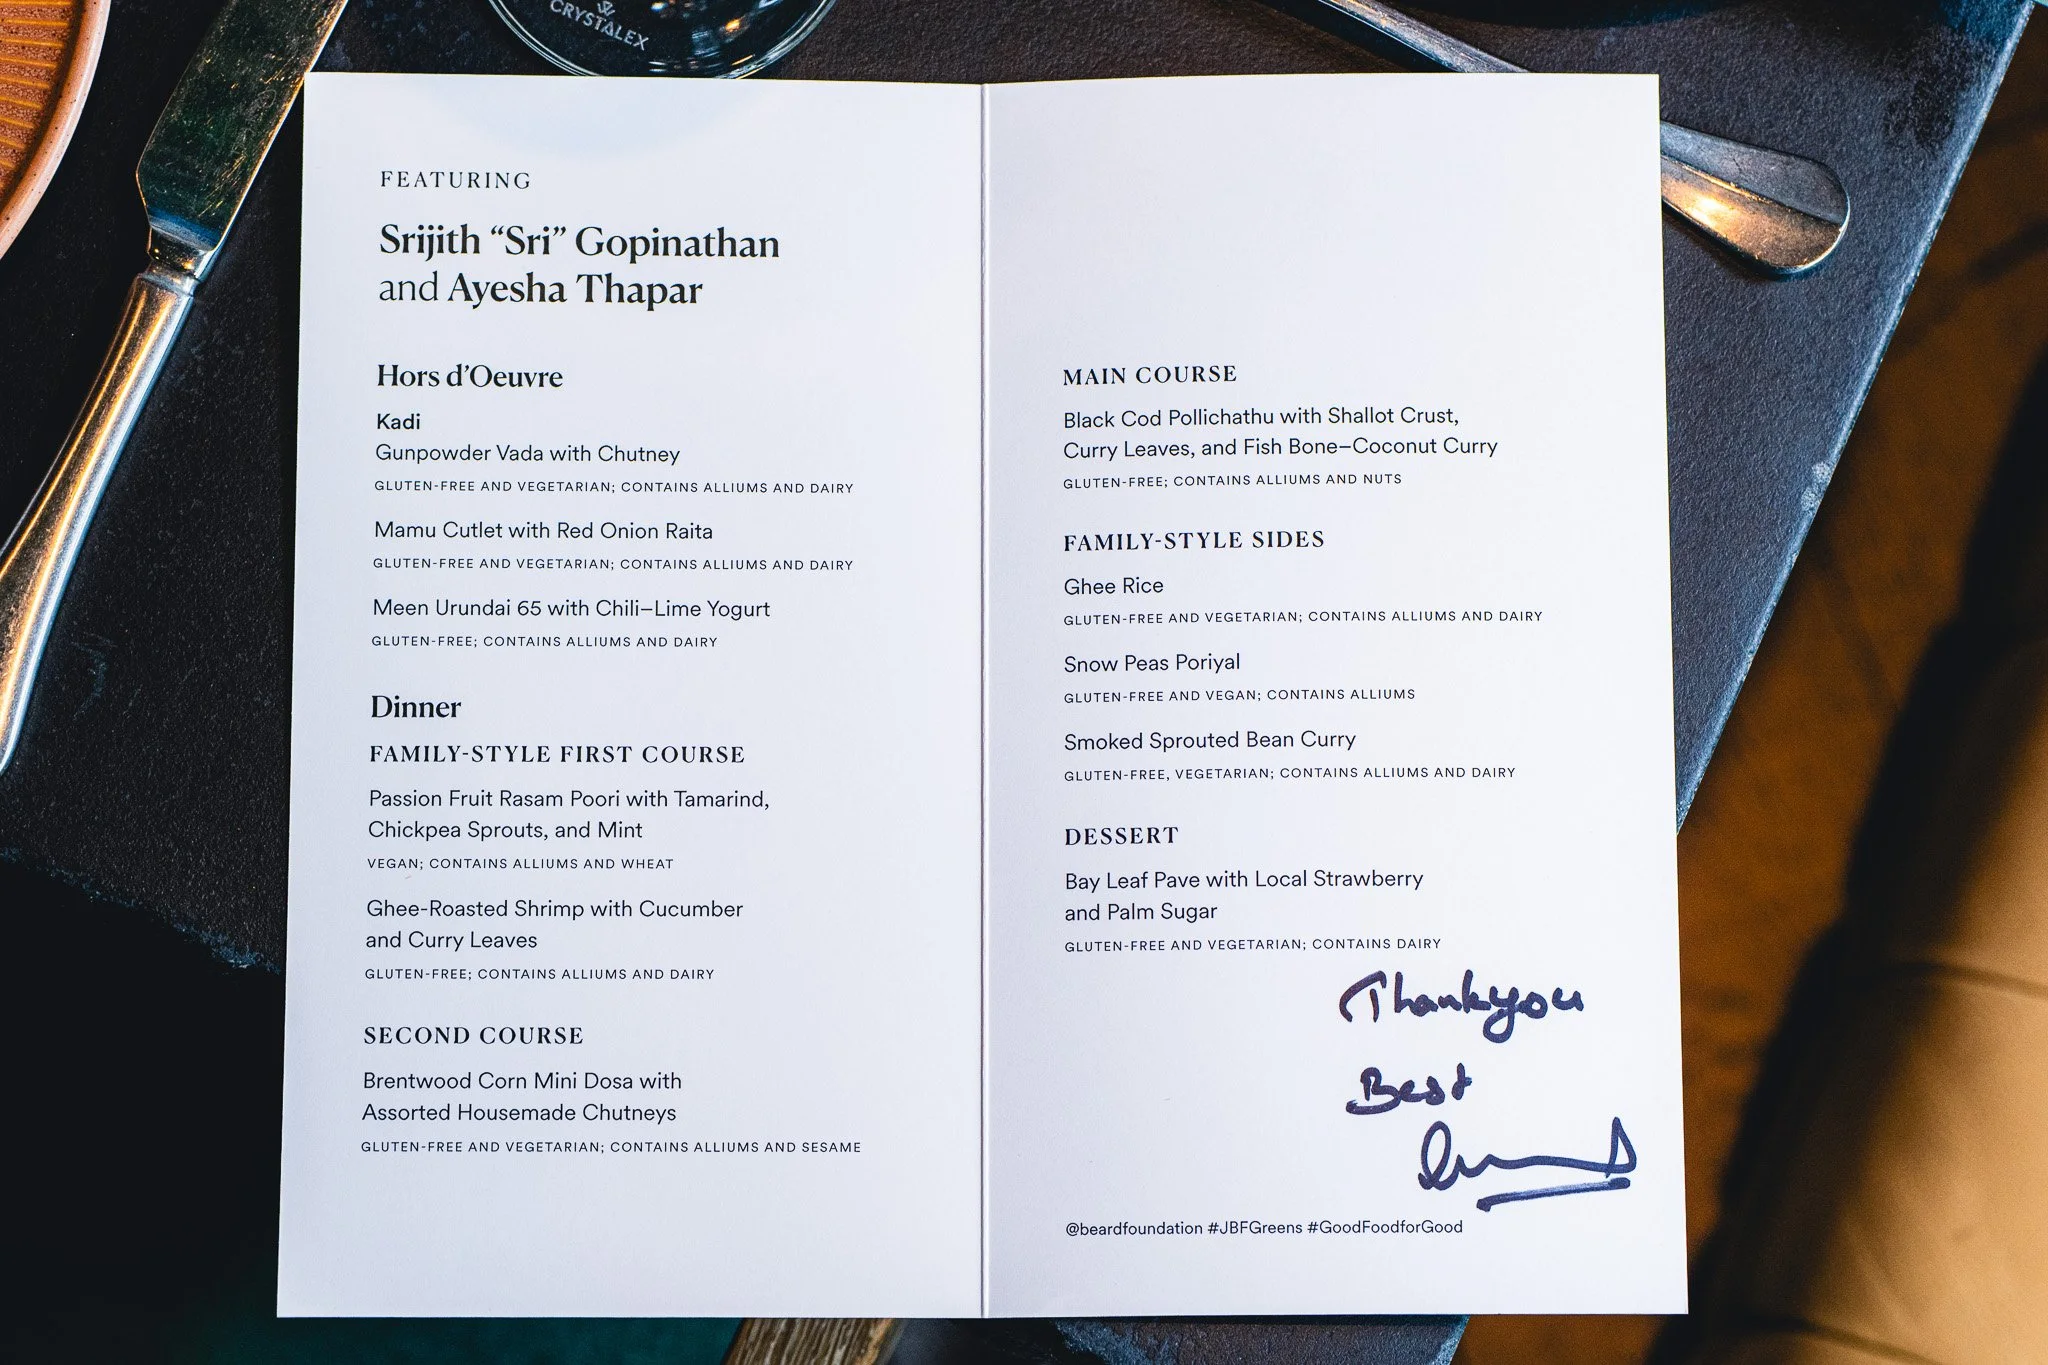 CRYSTALEX
FEATURING
Srijith “Sri” Gopinathan
and Ayesha Thapar
Hors d’Oeuvre
Kadi
Gunpowder Vada with Chutney
GLUTEN-FREE AND VEGETARIAN; CONTAINS ALLIUMS AND DAIRY
Mamu Cutlet with Red Onion Raita
GLUTEN-FREE AND VEGETARIAN; CONTAINS ALLIUMS AND DAIRY
Meen Urundai 65 with Chili–Lime Yogurt
GLUTEN-FREE; CONTAINS ALLIUMS AND DAIRY
Dinner
FAMILY-STYLE FIRST COURSE
Passion Fruit Rasam Poori with Tamarind,
Chickpea Sprouts, and Mint
VEGAN; CONTAINS ALLIUMS AND WHEAT
Ghee-Roasted Shrimp with Cucumber
and Curry Leaves
GLUTEN-FREE; CONTAINS ALLIUMS AND DAIRY
SECOND COURSE
Brentwood Corn Mini Dosa with
Assorted Housemade Chutneys
GLUTEN-FREE AND VEGETARIAN; CONTAINS ALLIUMS AND SESAME
MAIN COURSE
Black Cod Pollichathu with Shallot Crust,
Curry Leaves, and Fish Bone–Coconut Curry
GLUTEN-FREE; CONTAINS ALLIUMS AND NUTS
FAMILY-STYLE SIDES
Ghee Rice
GLUTEN-FREE AND VEGETARIAN; CONTAINS ALLIUMS AND DAIRY
Snow Peas Poriyal
GLUTEN-FREE AND VEGAN; CONTAINS ALLIUMS
Smoked Sprouted Bean Curry
GLUTEN-FREE, VEGETARIAN; CONTAINS ALLIUMS AND DAIRY
DESSERT
Bay Leaf Pave with Local Strawberry
and Palm Sugar
GLUTEN-FREE AND VEGETARIAN; CONTAINS DAIRY
Thankyou
Best
@beardfoundation #JBFGreens #GoodFoodforGood